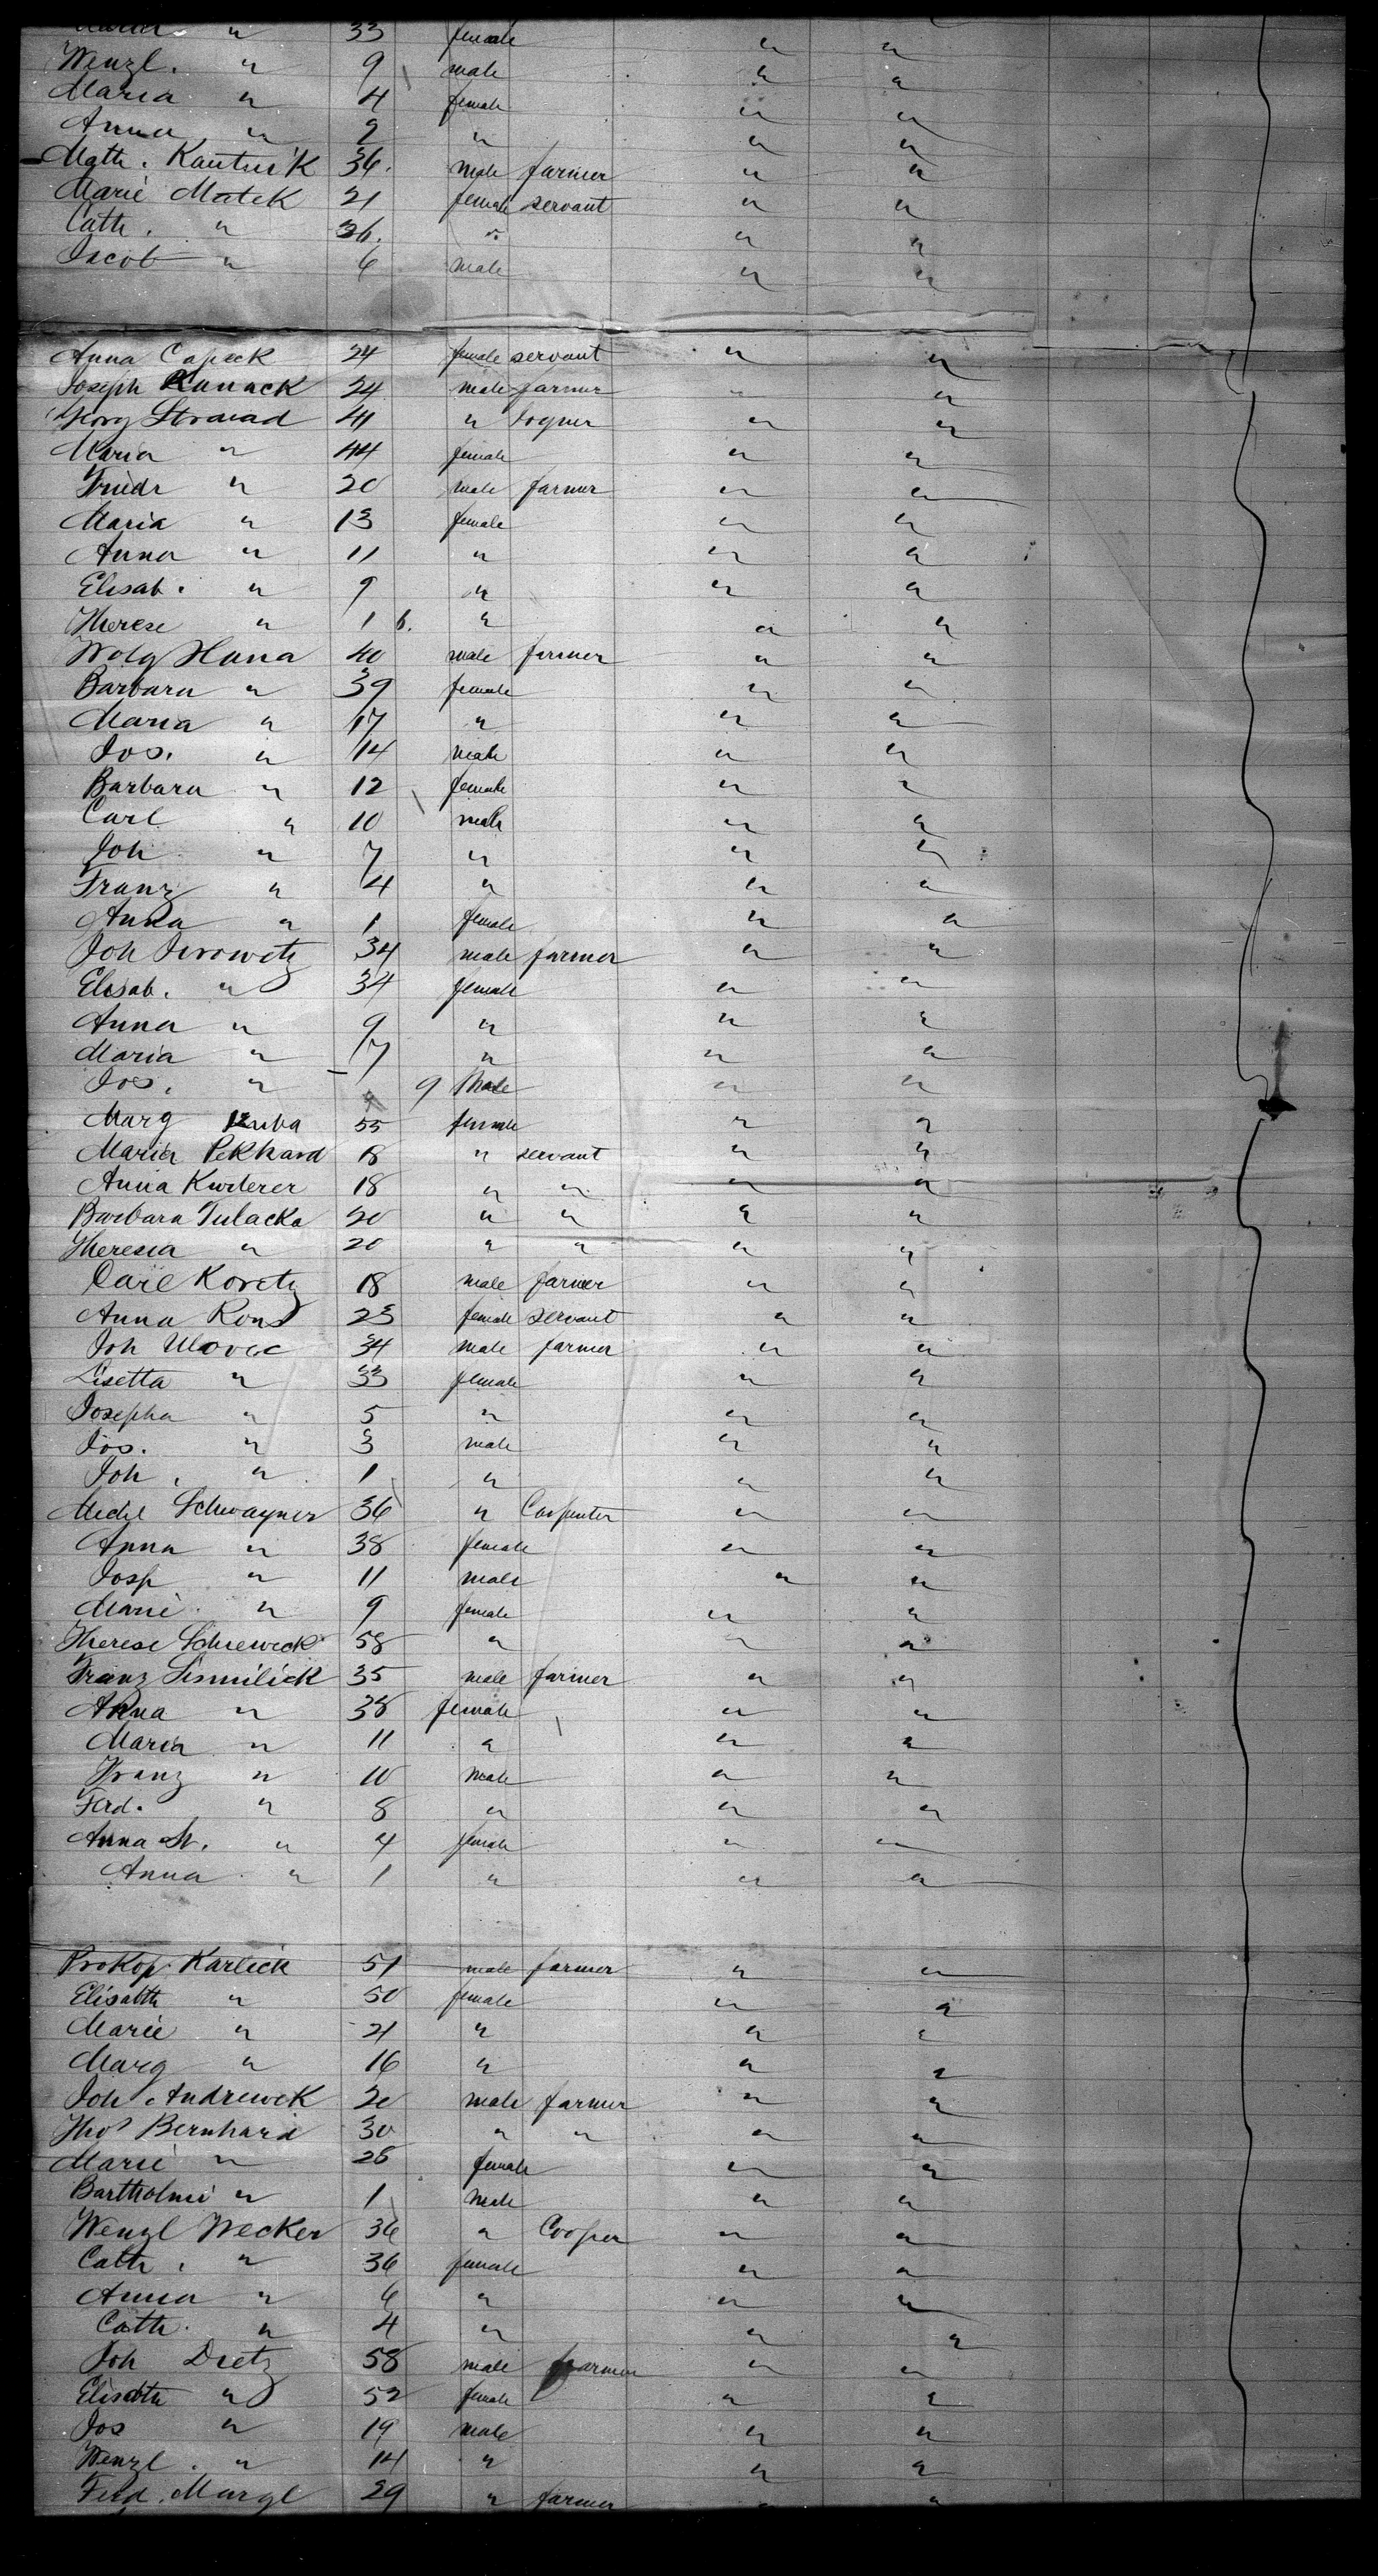 33 female " "
Wenzl. " 9 male " "
Maria " 4 female " "
Anna " 9 " " "
Math. Kautnik 36. male farmer " "
Marie Matek 21 female servant " "
Cath. " 26. " " "
Jacob " 6 male " "
Anna Capeck 24 female servant " "
Joseph Kunack 24 male farmer " "
Georg Stranad 41 " Joyner " "
Maria " 44 female " "
Friedr " 20 male farmer " "
Maria " 13 female " "
Anna " 11 " " "
Elisab. " 9 " " "
Therese " 1 6. " " "
Wolg Hana 40 male farmer " "
Barbara " 39 female " "
Maria " 17 " " "
Jos. " 14 male " "
Barbara " 12 female " "
Carl " 10 male " "
Joh " 7 " " "
Franz " 4 " " "
Anna " 1 female " "
Joh Jirowetz 34 male farmer " "
Elisab. " 34 female " "
Anna " 9 " " "
Maria " 7 " " "
Jos. " 9 Male " "
Marg Kuba 55 female " "
Maria Pekhard 18 " servant " "
Anna Kurderer 18 " " " "
Barbara Tulacka 20 " " " "
Theresia " 20 " " " "
Carl Koretz 18 male farmer " "
Anna Rous 23 female servant " "
Joh Ulovec 34 male farmer " "
Lisetta " 33 female " "
Josepha " 5 " " "
Jos. " 3 male " "
Joh. " 1 " " "
Michl Schwayner 36 " Carpenter " "
Anna " 38 female " "
Josp " 11 male " "
Marie " 9 female " "
Therese Schreweck 58 " " "
Franz Sismilick 35 male farmer " "
Anna " 38 female " "
Maria " 11 " " "
Franz " 10 male " "
Ferd. " 8 " " "
Anna M. " 4 female " "
Anna " 1 " " "
Prokop Karlick 51 male farmer " "
Elisabth " 50 female " "
Marie " 21 " " "
Marg " 16 " " "
Joh Andrewek 20 male farmer " "
Thos Bernhard 30 " " " "
Marie " 28 female " "
Bartholmi " 1 male " "
Wenzl Wecker 36 " Cooper " "
Cath. " 36 female " "
Anna " 6 " " "
Cath. " 4 " " "
Joh Dietz 58 male farmer " "
Elisabth " 52 female " "
Jos " 19 male " "
Wenzl. " 14 " " "
Ferd. Margl 29 " farmer " "